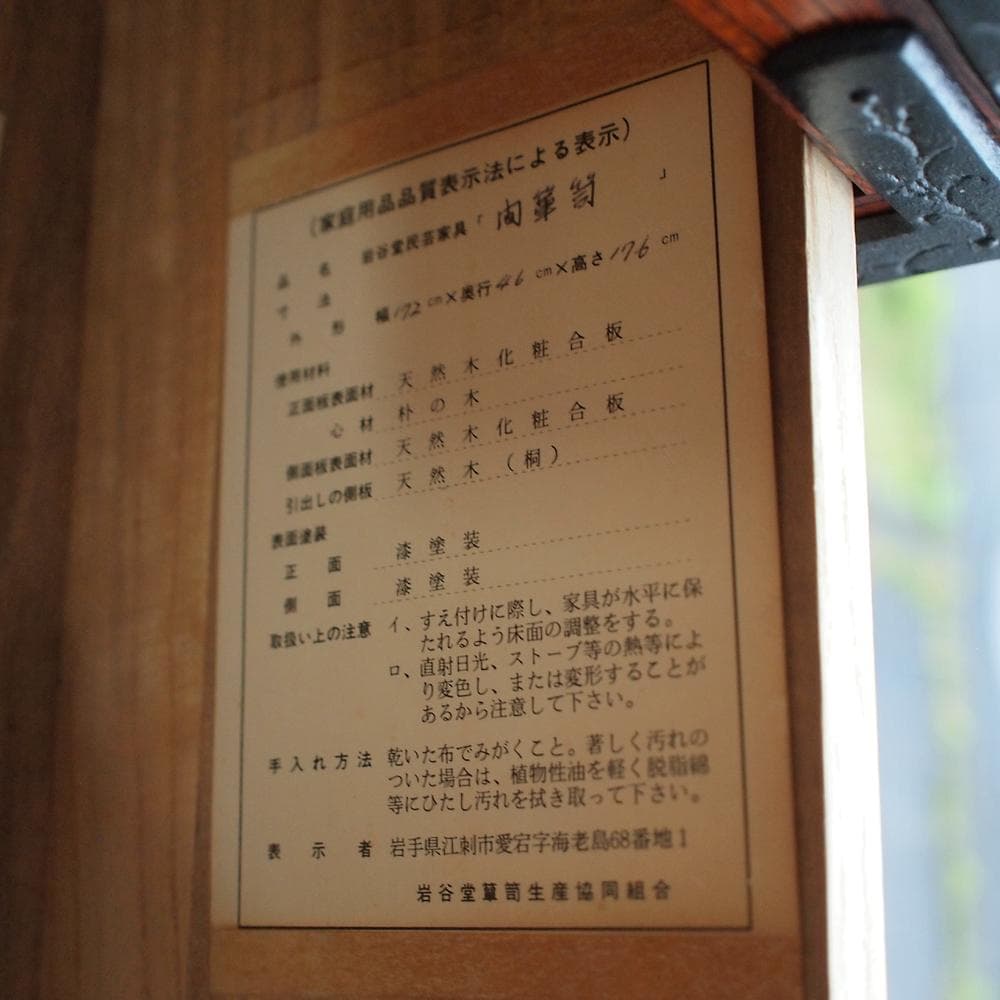 （家庭用品品質表示法による表示）
品名 岩谷堂民芸家具「 箪笥 」
寸法
外形 幅172cm×奥行46cm×高さ176cm
使用材料
正面板表面材 天然木化粧合板
心材 朴の木
側面板表面材 天然木化粧合板
引出しの側板 天然木（桐）
表面塗装
正面 漆塗装
側面 漆塗装
取扱い上の注意 イ、すえ付けに際し、家具が水平に保
たれるよう床面の調整をする。
ロ、直射日光、ストーブ等の熱等によ
り変色し、または変形することが
あるから注意して下さい。
手入れ方法 乾いた布でみがくこと。著しく汚れの
ついた場合は、植物性油を軽く脱脂綿
等にひたし汚れを拭き取って下さい。
表示者 岩手県江刺市愛宕字海老島68番地1
岩谷堂簞笥生産協同組合